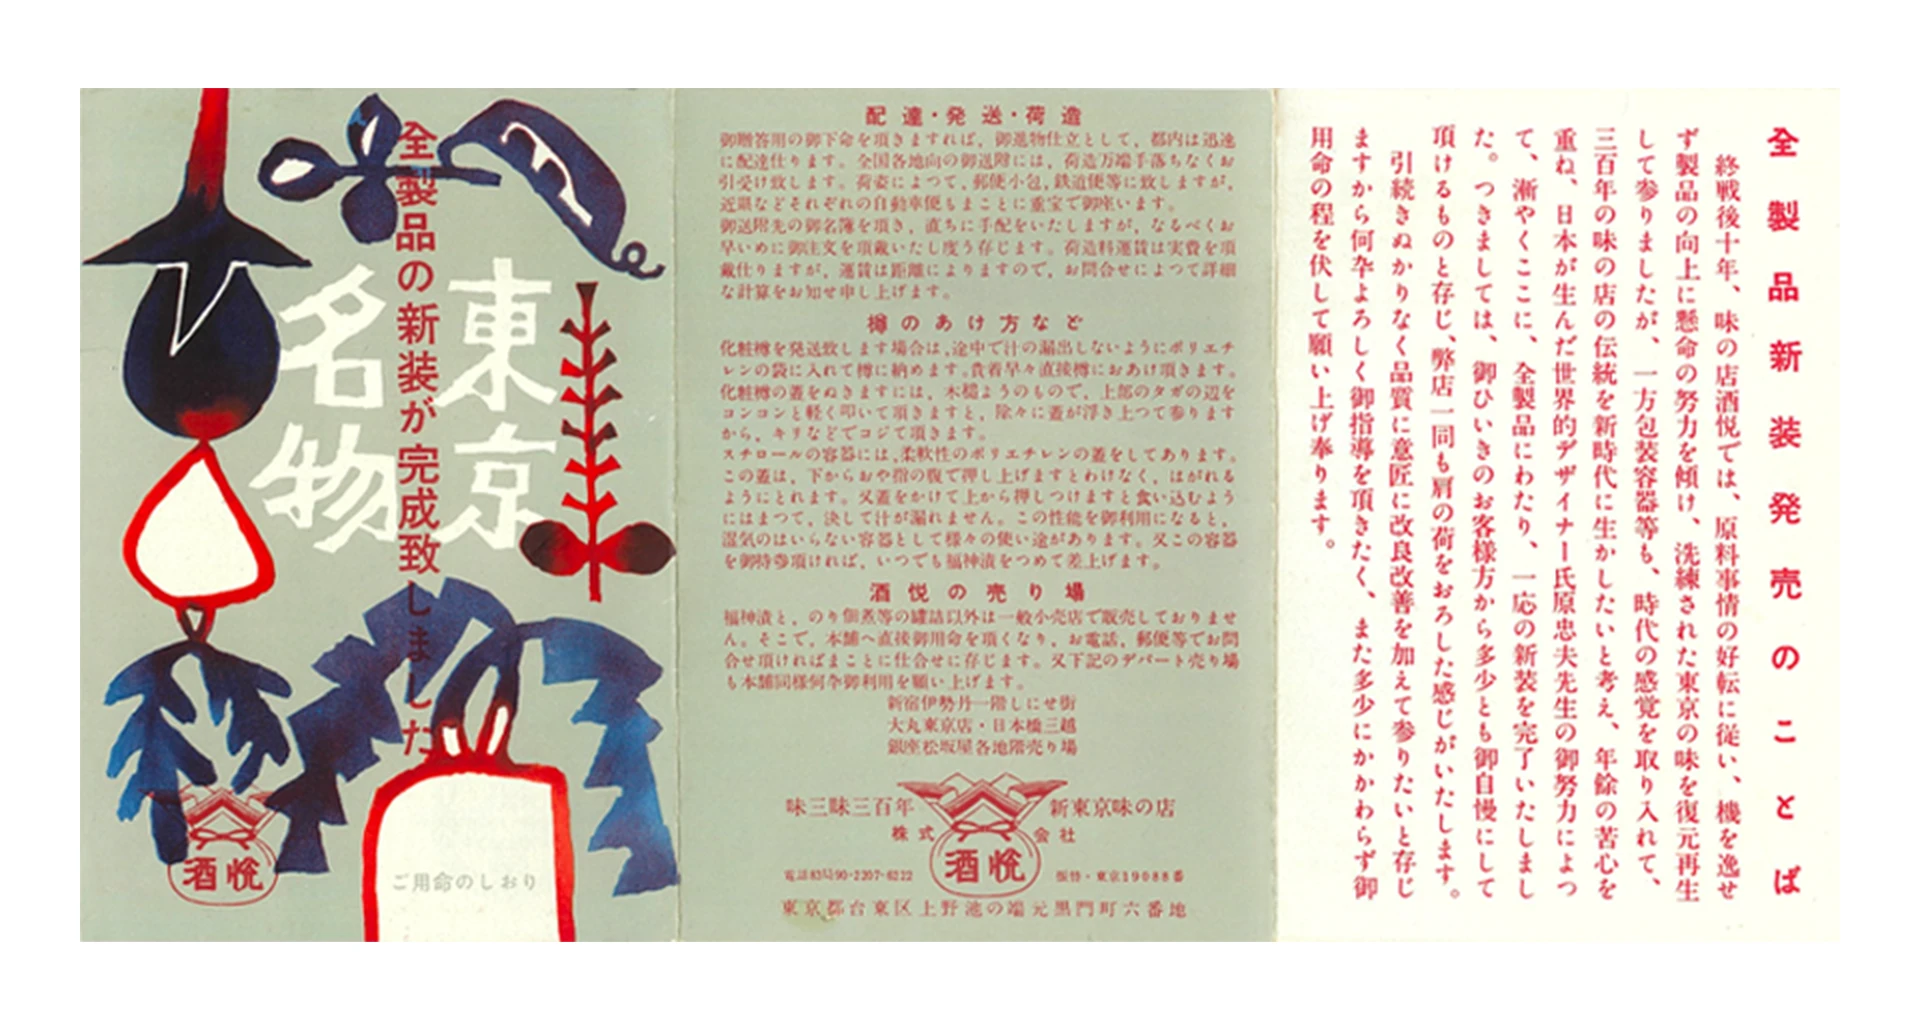 全製品の新装が完成致しました
東京
名物
酒悦
ご用命のしおり
配達・発送・荷造
御贈答用の御下命を頂きますれば，御進物仕立として，都内は迅速
に配達仕ります。全国各地向の御送附には，荷造万端手落ちなくお
引受け致します。荷姿によつて，郵便小包，鉄道便等に致しますが，
近県などそれぞれの自動車便もまことに重宝で御座います。
御送附先の御名簿を頂き，直ちに手配をいたしますが，なるべくお
早いめに御注文を頂戴いたし度う存じます。荷造料運賃は実費を頂
戴仕りますが，運賃は距離によりますので，お問合せによつて詳細
な計算をお知せ申し上げます。
樽のあけ方など
化粧樽を発送致します場合は，途中で汁の漏出しないようにポリエチ
レンの袋に入れて樽に納めます。貴着早々直接樽におあけ頂きます。
化粧樽の蓋をぬきますには，木槌ようのもので，上部のタガの辺を
コンコンと軽く叩いて頂きますと，除々に蓋が浮き上つて参ります
から，キリなどでコジて頂きます。
スチロールの容器には，柔軟性のポリエチレンの蓋をしてあります。
この蓋は，下からおや指の腹で押し上げますとわけなく，はがれる
ようにとれます。又蓋をかけて上から押しつけますと食い込むよう
にはまつて，決して汁が漏れません。この性能を御利用になると，
湿気のはいらない容器として様々の使い途があります。又この容器
を御持参頂ければ，いつでも福神漬をつめて差上げます。
酒悦の売り場
福神漬と，のり佃煮等の罐詰以外は一般小売店で販売しておりませ
ん。そこで，本舗へ直接御用命を頂くなり，お電話，郵便等でお問
合せ頂ければまことに仕合せに存じます。又下記のデパート売り場
も本舗同様何卒御利用を願い上げます。
新宿伊勢丹一階しにせ街
大丸東京店・日本橋三越
銀座松坂屋各地階売り場
味三昧三百年 新東京味の店
株式 会社
酒悦
電話83局90・2207・6222 振替・東京19088番
東京都台東区上野池の端元黒門町六番地
全製品新装発売のことば
終戦後十年、味の店酒悦では、原料事情の好転に従い、機を逸せ
ず製品の向上に懸命の努力を傾け、洗練された東京の味を復元再生
して参りましたが、一方包装容器等も、時代の感覚を取り入れて、
三百年の味の店の伝統を新時代に生かしたいと考え、年餘の苦心を
重ね、日本が生んだ世界的デザイナー氏原忠夫先生の御努力によつ
て、漸やくここに、全製品にわたり、一応の新装を完了いたしまし
た。つきましては、御ひいきのお客様方から多少とも御自慢にして
頂けるものと存じ、弊店一同も肩の荷をおろした感じがいたします。
引続きぬかりなく品質に意匠に改良改善を加えて参りたいと存じ
ますから何卒よろしく御指導を頂きたく、また多少にかかわらず御
用命の程を伏して願い上げ奉ります。